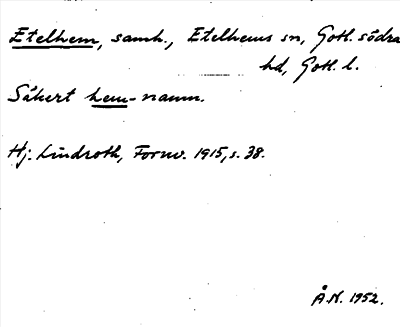 Etelhem, samh., Etelhems sn, Gotl. södra
hd, Gotl. l.
Säkert hem-namn.
Hj. Lindroth, Fornv. 1915, s. 38.
Å.N. 1952.